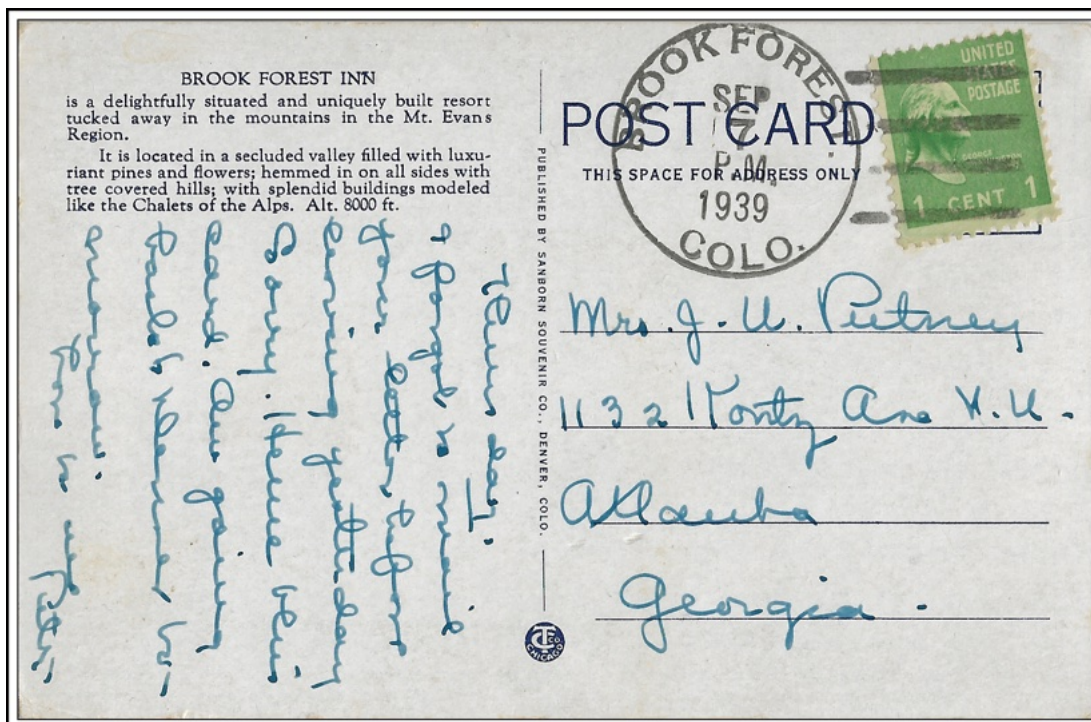 BROOK FOREST INN
is a delightfully situated and uniquely built resort
tucked away in the mountains in the Mt. Evans
Region.
It is located in a secluded valley filled with luxu-
riant pines and flowers; hemmed in on all sides with
tree covered hills; with splendid buildings modeled
like the Chalets of the Alps. Alt. 8000 ft.
Thursday.
I forgot to mail
your letter before
coming yesterday
Sorry. Hence this
card. Am going
Back to Denver to-
morrow.
Love to
PUBLISHED BY SANBORN SOUVENIR CO., DENVER, COLO.
CHICAGO
POST CARD
THIS SPACE FOR ADDRESS ONLY
BROOK FOREST
SEP
7
P.M.
1939
COLO.
UNITED
STATES
POSTAGE
GEORGE WASHINGTON
1 CENT 1
Mrs. J. W. Putney
1132 Kontz Ave N.W.
Atlanta
Georgia.